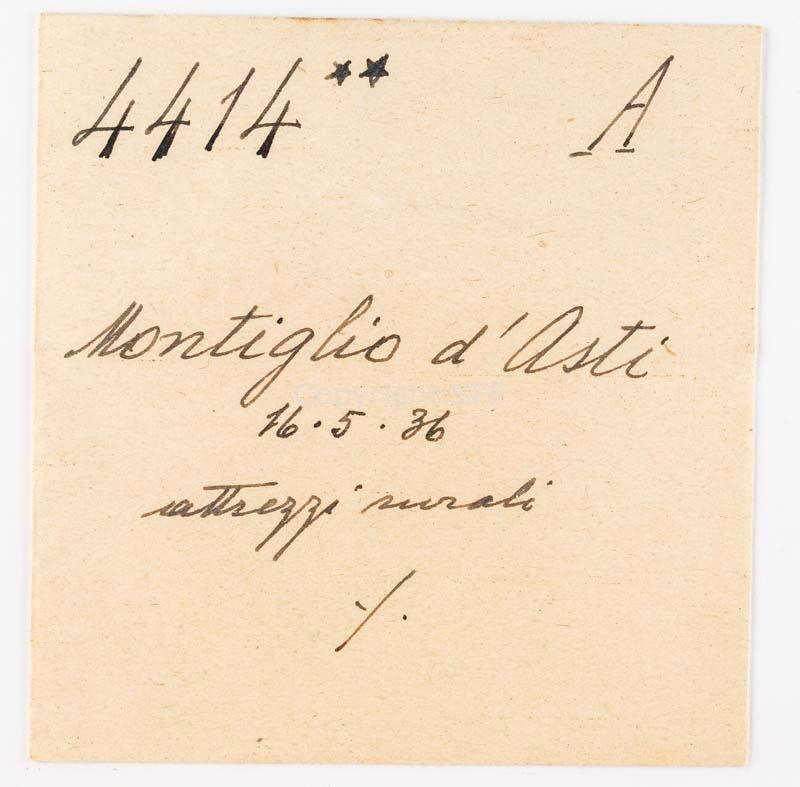 4414** A
Montiglio d'Asti
16.5.36
attrezzi rurali
./.